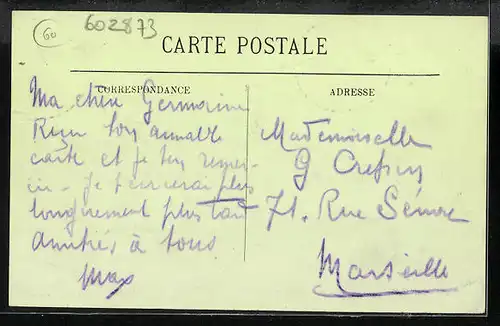 60
602873
CARTE POSTALE
CORRESPONDANCE
ADRESSE
Ma chère Germaine
Reçu ton aimable
carte et je t'en remer-
cie. Je t'écrirai plus
longuement plus tard
amitiés à tous
Max
Mademoiselle
G
71. Rue
Marseille